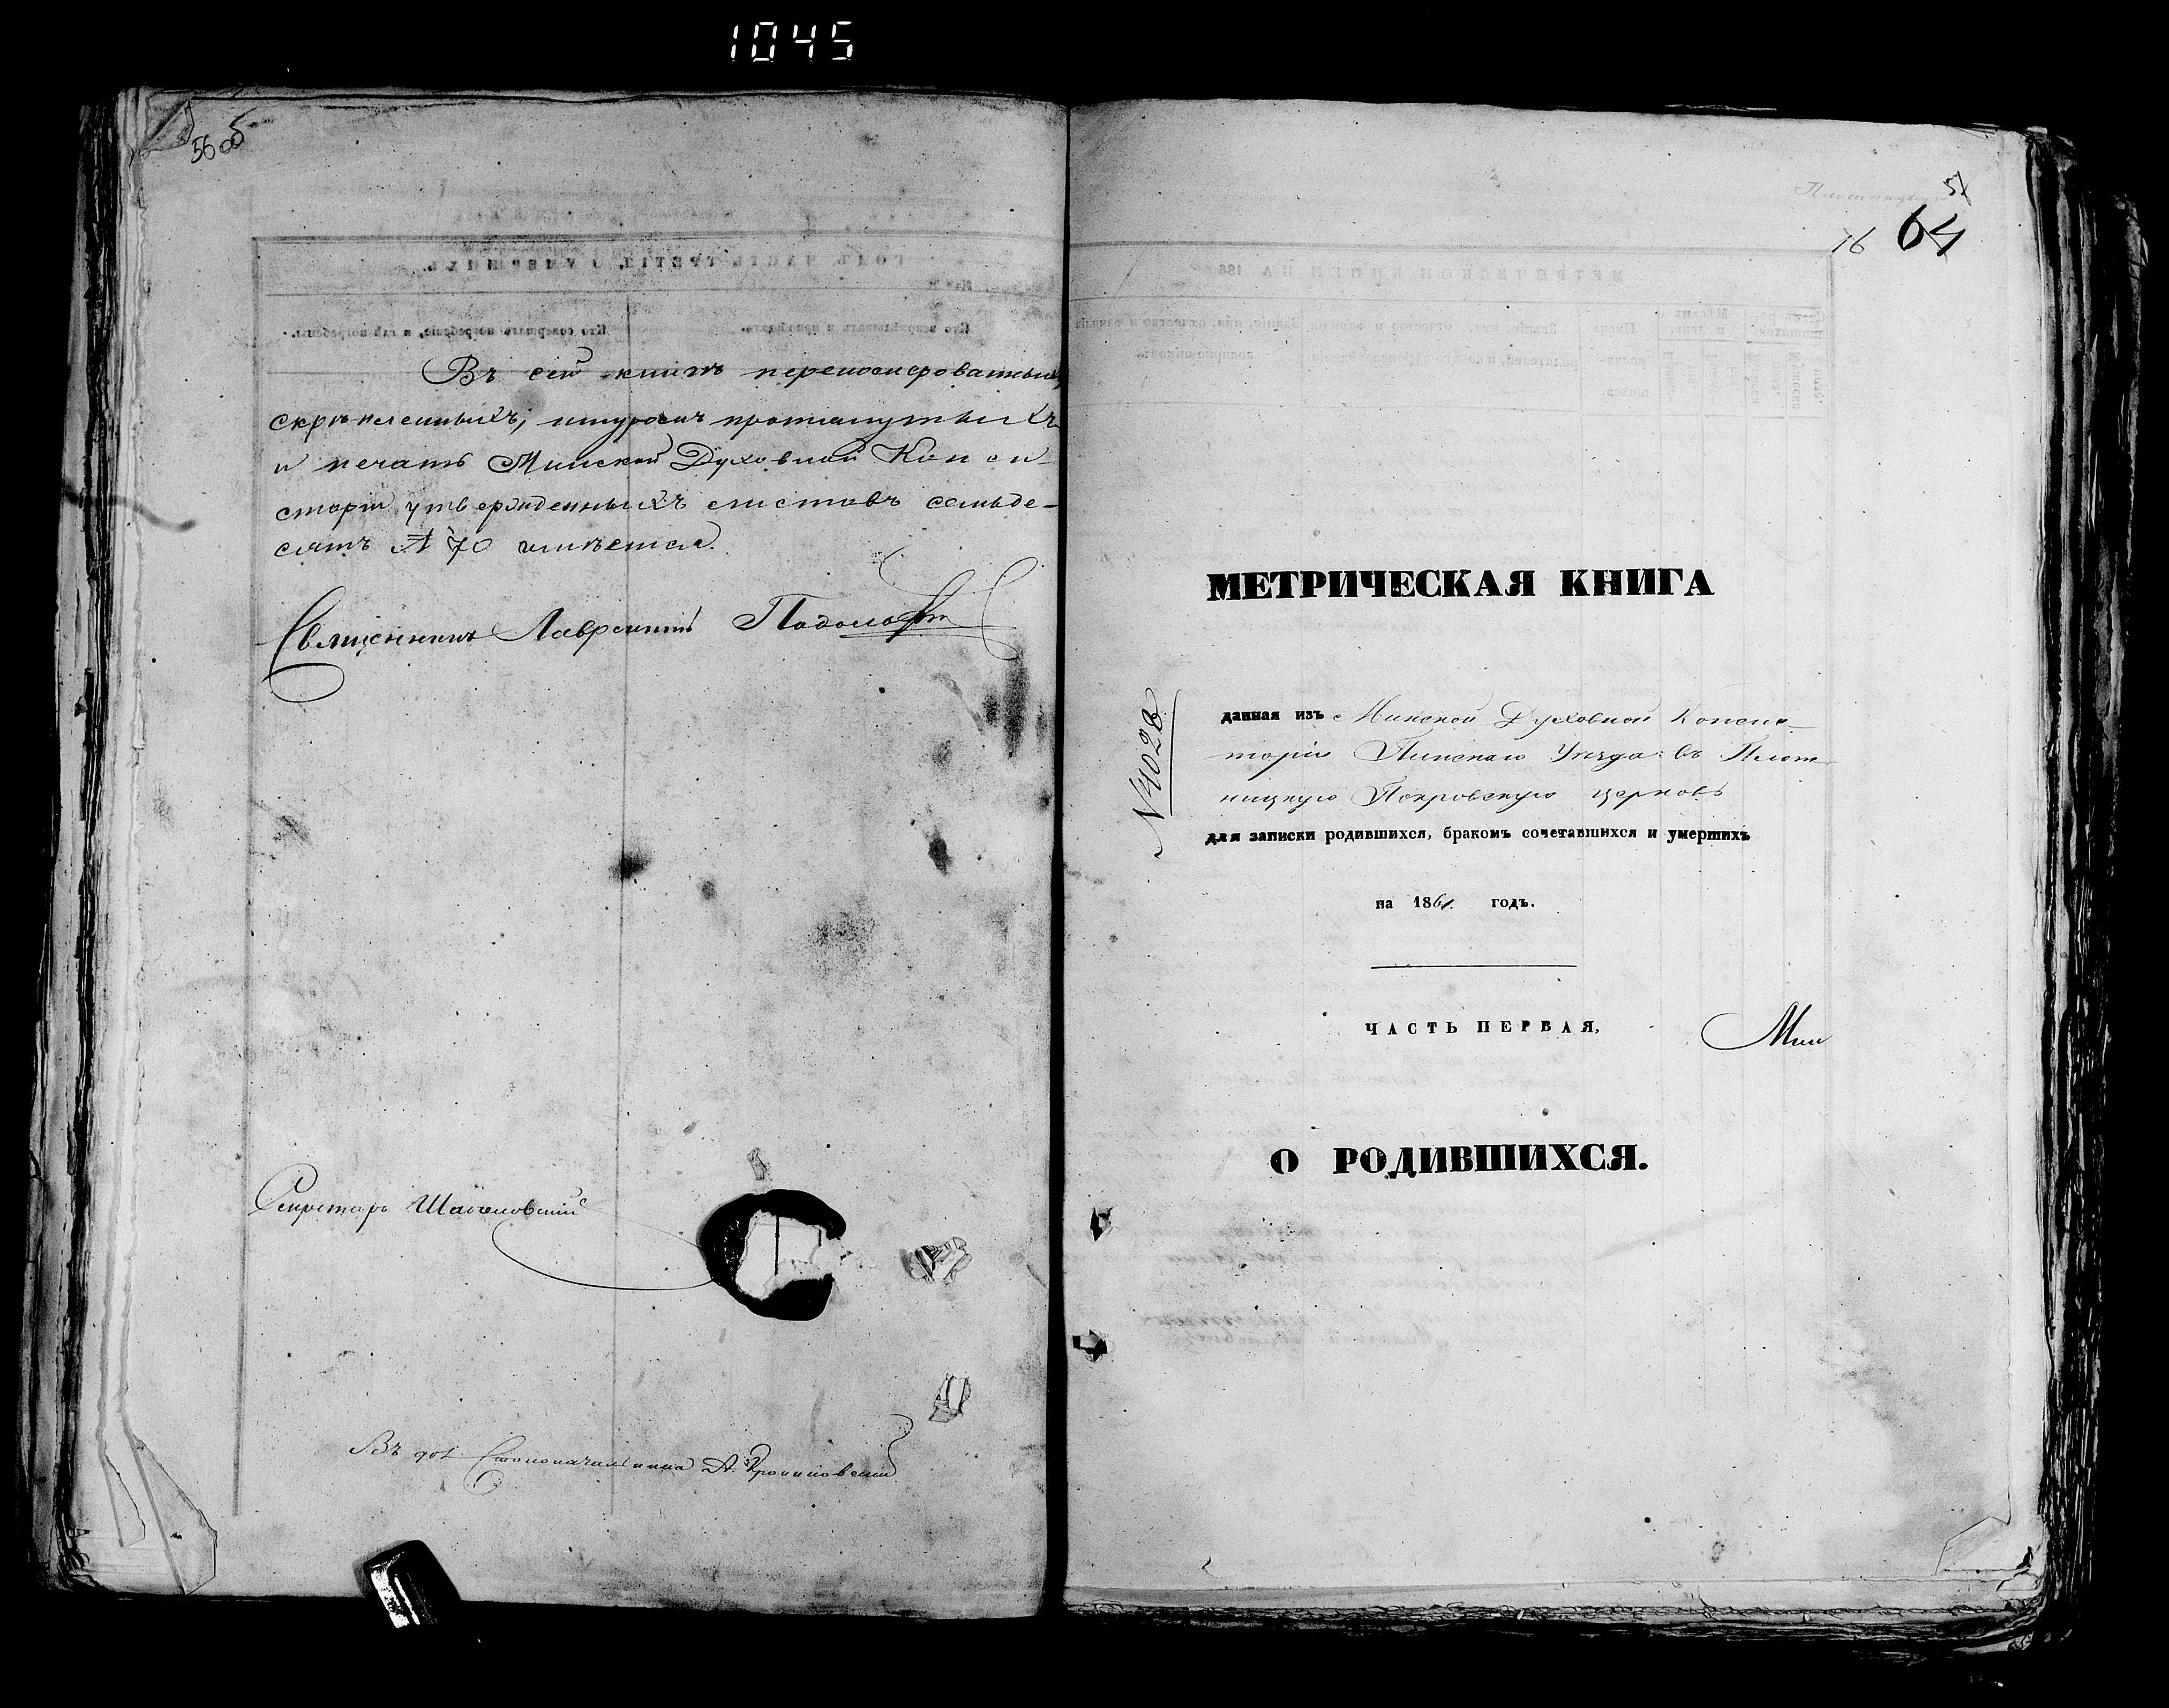 1045
56 об
Въ сей книгѣ перенумерованныхъ,
скрѣпленныхъ, шнуромъ протянутыхъ
и печатью Минской Духовной Конси-
сторіи утвержденныхъ листовъ семьде-
сятъ № 70 имѣется.
Священникъ Лаврентій
Секретарь
Въ дол. Столоначальника А.
57
16 64
МЕТРИЧЕСКАЯ КНИГА
№ 4028
данная изъ Минской Духовной Консис-
торіи Пинскаго Уѣзда въ Плот-
ницкую Покровскую церковь
для записки родившихся, бракомъ сочетавшихся и умершихъ
на 1861 годъ.
ЧАСТЬ ПЕРВАЯ,
Мин
О РОДИВШИХСЯ.